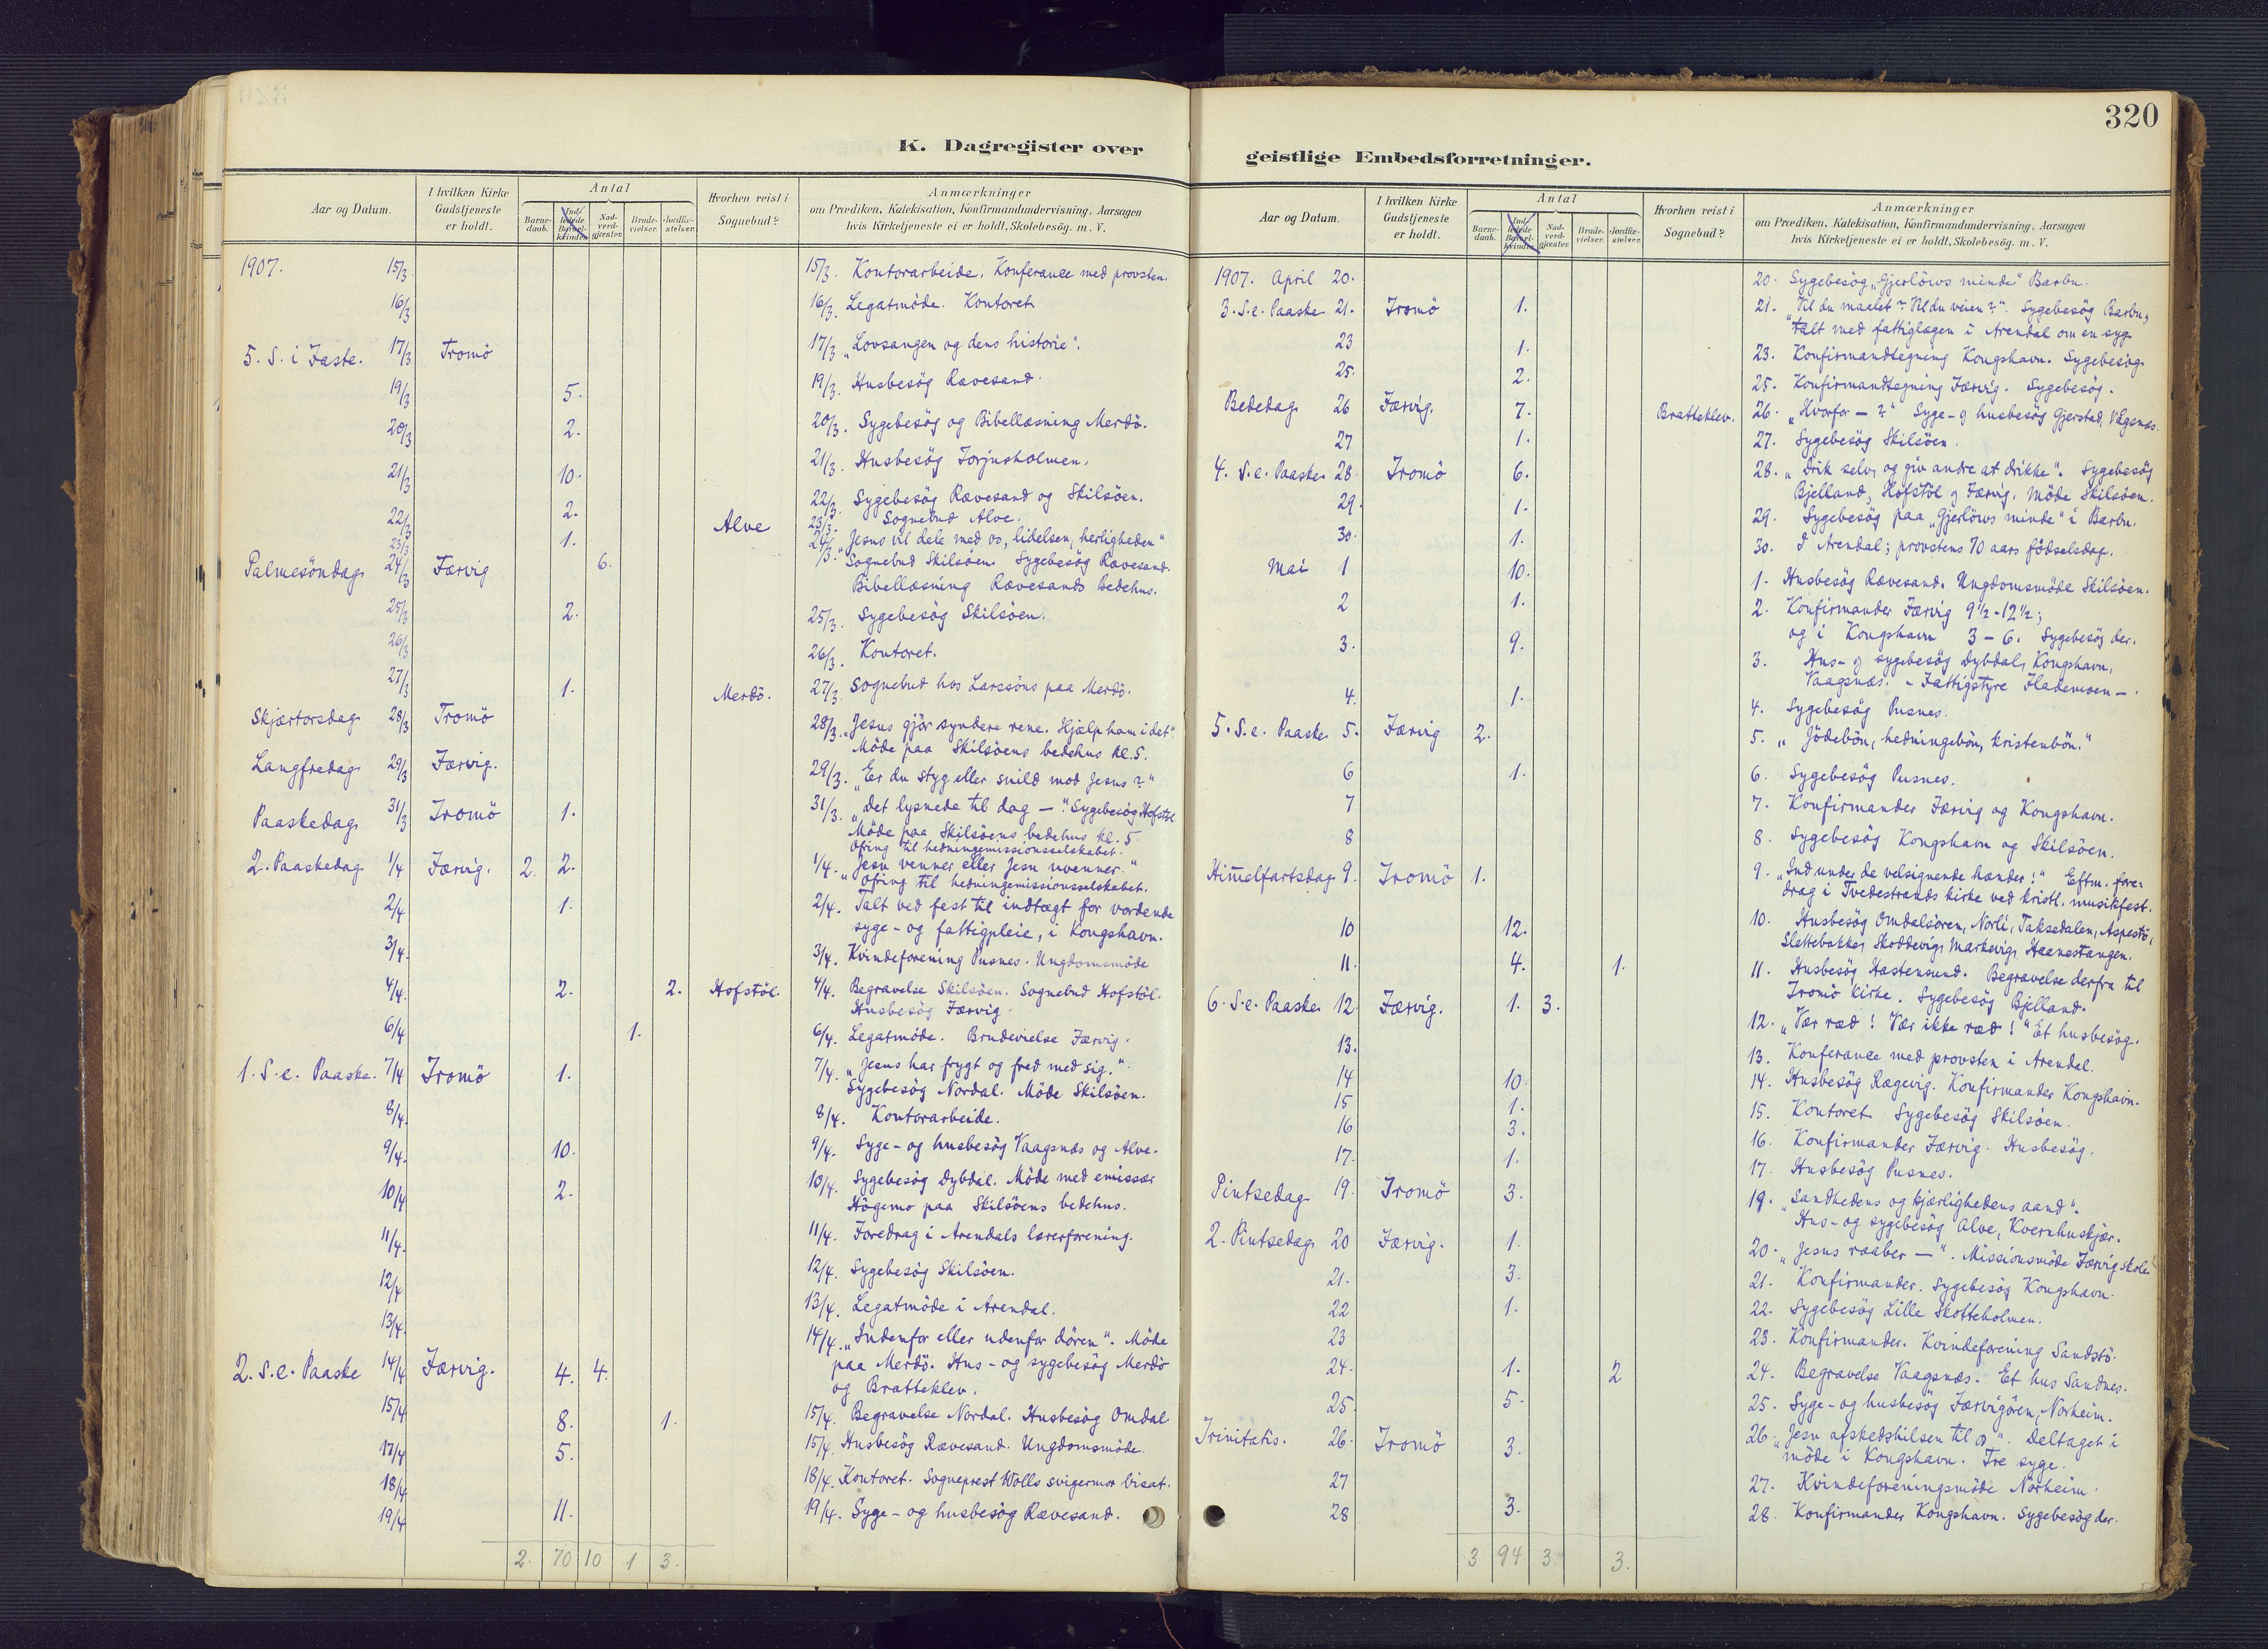 320
K. Dagregister over
Aar og Datum.
I hvilken Kirke Gudstjeneste er holdt.
Antal
Barne-daab.
Ind-ledede Barsel-kvinder.
Nad-verd-gjæster.
Brude-vielser.
Jordfæ-stelser.
Hvorhen reist i Sognebud?
Anmærkninger
om Prædiken, Katekisation, Konfirmandundervisning. Aarsagen
hvis Kirketjeneste ei er holdt, Skolebesøg. m. V.
1907. 15/3. 15/3. Kontorarbeide. Konferance med provsten.
16/3 16/3. Legatmöde. Kontoret.
5. S. i Faste. 17/3 Tromö 17/3 "Lovsangen og dens historie".
19/3 5. 19/3. Husbesög Rævesand.
20/3 2. 20/3. Sygebesög og Bibellæsning Merdö.
21/3 10. 21/3. Husbesög Torjusholmen.
22/3 2. 22/3. Sygebesög Rævesand og Skilsöen.
23/3 1. Alve 23/3. Sognebud Alve.
Palmesöndag 24/3 Færvig 6. 24/3. "Jesus vil dele med os, lidelsen, herligheden"
Sognebud Skilsöen. Sygebesög Rævesand.
Bibellæsning Rævesands bedehus.
25/3 2. 25/3. Sygebesög Skilsöen.
26/3 26/3. Kontoret.
27/3 1. Merdö. 27/3. Sognebud hos Larssöns paa Merdö.
Skjærtorsdag 28/3 Tromö 28/3. "Jesus gjör syndere rene. Hjælp ham i det".
Möde paa Skilsöens bedehus kl. 5.
Langfredag 29/3 Færvig. 29/3. "Er du styg eller snild mod Jesus?"
Paaskedag 31/3 Tromö 1. 31/3. "Det lysnede til dag —". Sygebesög Hofstöl
Möde paa Skilsöens bedehus kl. 5
Ofring til hedningemissionsselskabet.
2. Paaskedag 1/4 Færvig. 2. 2. 1/4. "Jesu venner eller Jesu uvenner."
Ofring til hedningemissionsselskabet.
2/4 1. 2/4. Talt ved fest til indtægt for vordende
syge- og fattigpleie, i Kongshavn.
3/4. 3/4. Kvindeforening Pusnes. Ungdomsmöde
4/4. 2. 2. Hofstöl. 4/4. Begravelse Skilsöen. Sognebud Hofstöl.
Husbesög Færvig.
6/4 1. 6/4. Legatmöde. Brudevielse Færvig.
1. S. e. Paaske. 7/4 Tromö 1. 7/4. "Jesus har frygt og fred med sig."
Sygebesög Nordal. Möde Skilsöen.
8/4. 8/4. Kontorarbeide.
9/4. 10. 9/4. Syge- og husbesög Vaagsnæs og Alve.
10/4 2. 10/4. Sygebesög Dybdal. Möde med emissær
Högemo paa Skilsöens bedehus.
11/4. 11/4. Foredrag i Arendals lærerforening.
12/4 12/4. Sygebesög Skilsöen.
13/4. 13/4. Legatmöde i Arendal.
2. S. e. Paaske 14/4 Færvig. 4. 4. 14/4. "Indenfor eller udenfor dören". Möde
paa Merdö. Hus- og sygebesög Merdö
og Bratteklev.
15/4 8. 1. 15/4. Begravelse Nordal. Husbesög Omdal
17/4 5. 15/4. Husbesög Rævesand. Ungdomsmöde.
18/4 18/4. Kontoret. Sogneprest Wolls svigermor bisat.
19/4 11. 19/4. Syge- og husbesög Rævesand.
2. 70 10 1 3.
geistlige Embedsforretninger.
Aar og Datum.
I hvilken Kirke Gudstjeneste er holdt.
Antal
Barne-daab.
Ind-ledede Barsel-kvinder.
Nad-verd-gjæster.
Brude-vielser.
Jordfæ-stelser.
Hvorhen reist i Sognebud?
Anmærkninger
om Prædiken, Katekisation, Konfirmandundervisning. Aarsagen
hvis Kirketjeneste ei er holdt, Skolebesøg. m. V.
1907. April 20. 20. Sygebesög "Gjerlöws minde" Barbu.
3. S. e. Paaske 21. Tromö 1. 21. "Vil du maalet? Vil du veien?". Sygebesög Barbu,
talt med fattiglægen i Arendal om en syg.
23 1. 23. Konfirmandtegning Kongshavn. Sygebesög
25. 2. 25. Konfirmandtegning Færvig. Sygebesög.
Bededag 26 Færvig. 7. Bratteklev. 26. "Hvorfor —?" Syge- og husbesög Gjerstad, Vågsnæs.
27 1. 27. Sygebesög Skilsöen.
4. S. e. Paaske 28. Tromö 6. 28. "Drik selv, og giv andre at drikke". Sygebesög
Bjelland, Hofstöl og Færvig. Möde Skilsöen.
29. 1. 29. Sygebesög paa "Gjerlöws minde" i Barbu.
30. 1. 30. I Arendal; provstens 70 aars födselsdag.
Mai 1 10. 1. Husbesög Rævesand. Ungdomsmöde Skilsöen.
2 1. 2. Konfirmander Færvig 9½-12½;
og i Kongshavn 3-6. Sygebesög der.
3. 9. 3. Hus- og sygebesög Dybdal, Kongshavn,
Vaagsnæs. - Fattigstyre Flademoen -.
4. 1. 4. Sygebesög Pusnes.
5. S. e. Paaske. 5. Færvig 2. 5. "Jödebön, hedningebön, kristenbön."
6 1. 6. Sygebesög Pusnes.
7 7. Konfirmander Færvig og Kongshavn.
8 8. Sygebesög Kongshavn og Skilsöen.
Himmelfartsdag 9. Tromö 1. 9. "Ind under de velsignende hænder!" Eftm. fore-
drag i Tvedestrands kirke ved kristl. musikfest.
10 12. 10. Husbesög Omdalsören, Norli, Taksedalen, Aspestö,
Slettebakke, Skoddevig, Markevig, Haanestangen.
11. 4. 1. 11. Husbesög Hastensund. Begravelse derfra til
Tromö kirke. Sygebesög Bjelland.
6. S. e. Paaske 12 Færvig. 1. 3. 12. "Vær ræd! Vær ikke ræd!" Et husbesög.
13. 13. Konferance med provsten i Arendal.
14 10. 14. Husbesög Rægevig. Konfirmander Kongshavn.
15 1. 15. Kontoret. Sygebesög Skilsöen.
16 3. 16. Konfirmander Færvig. Husbesög.
17. 1. 17. Husbesög Pusnes.
Pintsedag 19. Tromö 3. 19. "Sandhedens og kjærlighedens aand".
Hus- og sygebesög Alve, Kvernhuskjær.
2. Pintsedag 20 Færvig. 1. 20. "Jesus raaber —". Missionsmöde Færvig skole.
21. 3. 21. Konfirmander. Sygebesög Kongshavn.
22 1. 22. Sygebesög Lille Skotteholmen.
23 23. Konfirmander. Kvindeforening Sandstö.
24. 1. 2 24. Begravelse Vaagsnæs. Et hus Sandnes.
25. 5. 25. Syge- og husbesög Færvigören, Norheim.
Trinitatis. 26. Tromö 3. 26. "Jesu afskedshilsen til os". Deltaget i
möde i Kongshavn. Tre syge.
27 27. Kvindeforeningsmöde Norheim.
28 3. 28. Konfirmander Kongshavn. Sygebesög der.
3 94 3. 3.